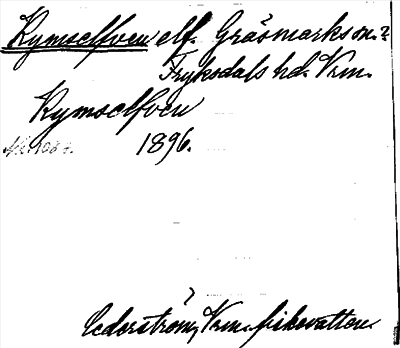 Rymselfven elf. Gräsmarks sn.?
Fryksdals hd. Vrm.
Rymselfven
1896.
Cederström, Vrm. fiskevatten.